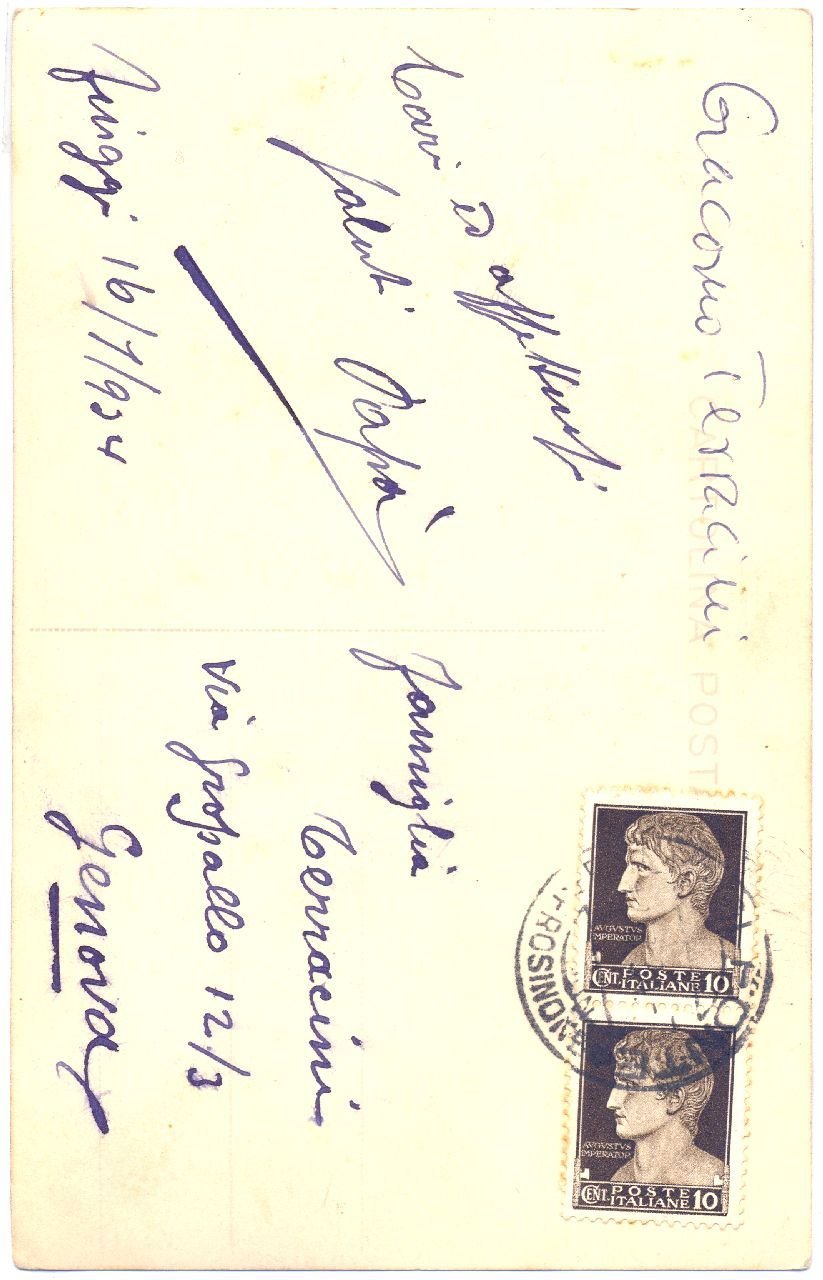 Giacomo Terracini
CARTOLINA POST
Cari ed affettuosi
saluti Papà
Fiuggi 16/7/934
Famiglia
Terracini
via Gropallo 12/3
Genova
AVGVSTVS
IMPERATOR
CENT. POSTE ITALIANE 10
AVGVSTVS
IMPERATOR
CENT. POSTE ITALIANE 10
FROSINONE